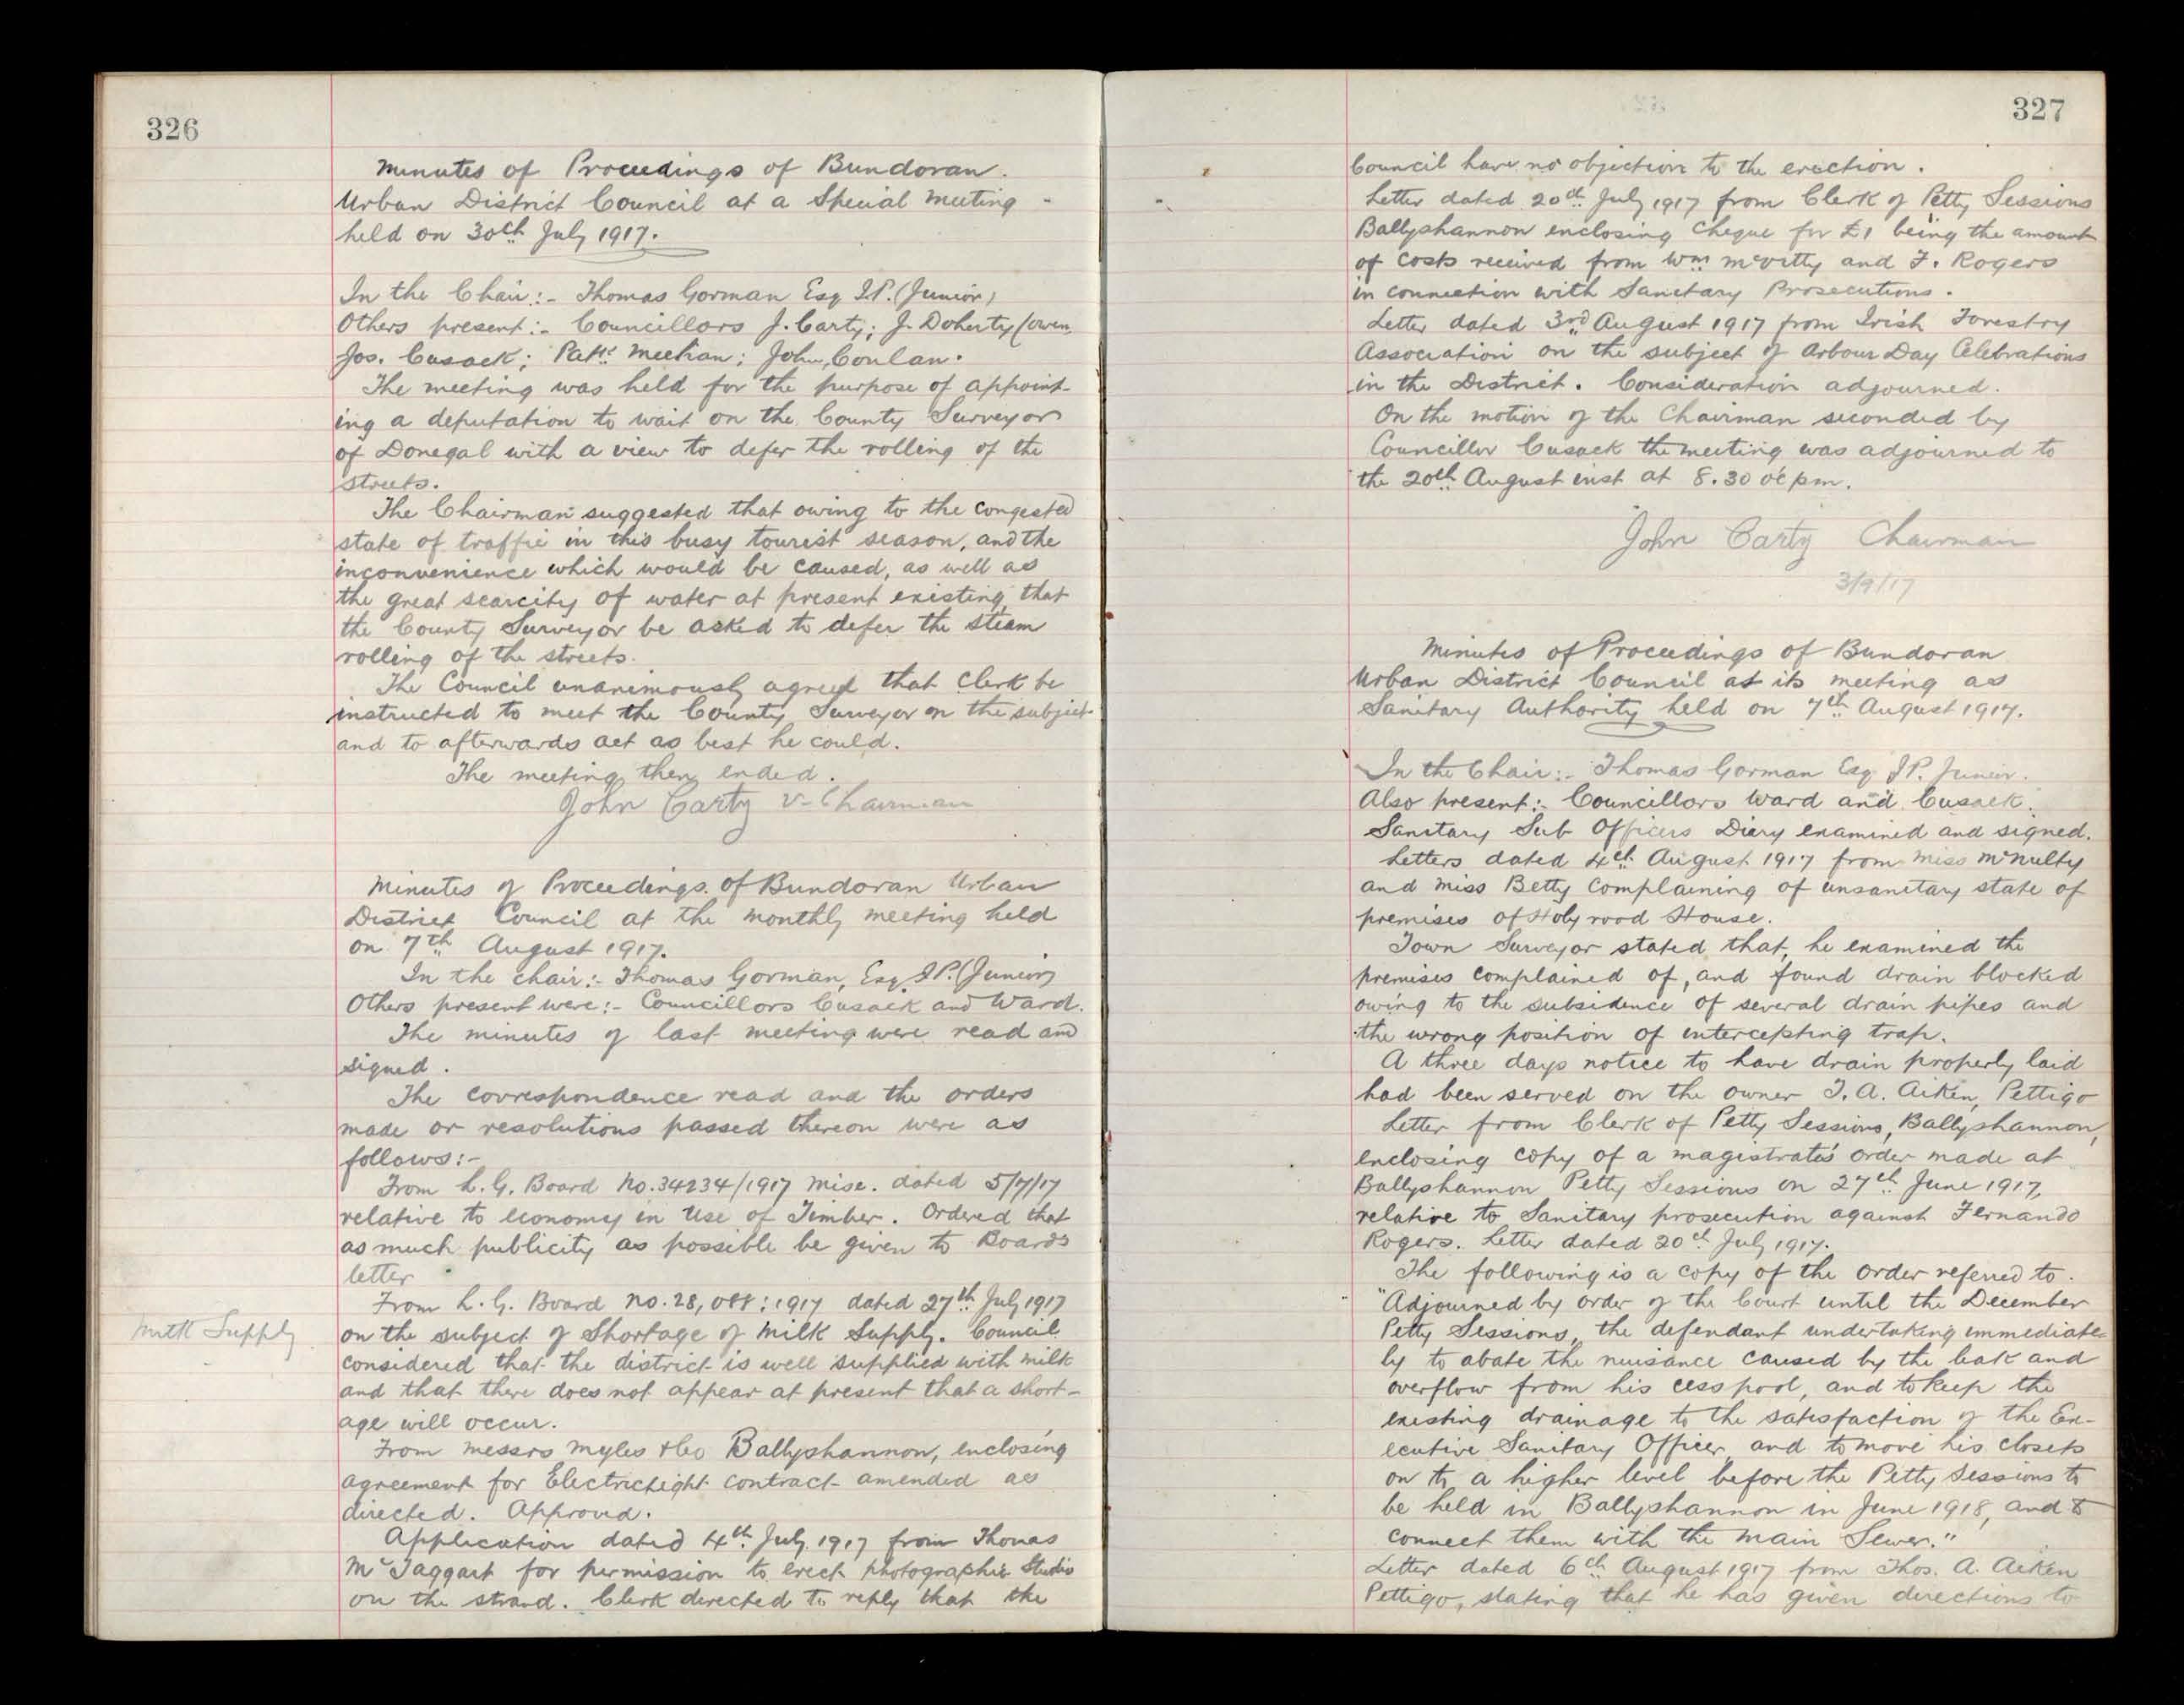 326
Minutes of Proceedings of Bundoran.
Urban District Council at a Special Meeting -
held on 30th July 1917.
In the Chair:- Thomas Gorman Esq J.P. (Junior)
Others present:- Councillors J. Carty; J. Doherty (Owen,
Jos. Cusack; Patk Meehan; John Conlan.
The meeting was held for the purpose of appoint-
ing a deputation to wait on the County Surveyor
of Donegal with a view to defer the rolling of the
streets.
The Chairman suggested that owing to the congested
state of traffic in this busy tourist season, and the
inconvenience which would be caused, as well as
the great scarcity of water at present existing that
the County Surveyor be asked to defer the steam
rolling of the streets.
The Council unanimously agreed that Clerk be
instructed to meet the County Surveyor on the subject
and to afterwards act as best he could.
The meeting then ended.
John Carty V-Chairman
Minutes of Proceedings of Bundoran Urban
District Council at the monthly meeting held
on 7th August 1917.
In the chair:- Thomas Gorman, Esq J.P. (Junior)
Others present were:- Councillors Cusack and Ward.
The minutes of last meeting were read and
signed.
The correspondence read and the orders
made or resolutions passed thereon were as
follows:-
From L.G. Board No. 34234/1917 Misc. dated 5/7/17
relative to economy in use of Timber. Ordered that
as much publicity as possible be given to Boards
letter
From L.G. Board No. 28, 088: 1917 dated 27th July 1917
Milk Supply
on the subject of Shortage of Milk Supply. Council
considered that the district is well supplied with milk
and that there does not appear at present that a short-
age will occur.
From Messrs Myles & Co Ballyshannon, enclosing
agreement for Electric light contract amended as
directed. Approved.
Application dated 4th July 1917 from Thomas
McTaggart for permission to erect photographic Studio
on the strand. Clerk directed to reply that the
327
Council have no objection to the erection.
Letter dated 20th July 1917 from Clerk of Petty Sessions
Ballyshannon enclosing Cheque for £1 being the amount
of costs received from Wm McVitty and F. Rogers
in connection with Sanitary Prosecutions.
Letter dated 3rd August 1917 from Irish Forestry
Association on the subject of Arbour Day Celebrations
in the District. Consideration adjourned.
On the motion of the Chairman seconded by
Councillor Cusack the meeting was adjourned to
the 20th August inst at 8.30 o'c pm.
John Carty Chairman
3/9/17
Minutes of Proceedings of Bundoran
Urban District Council at its meeting as
Sanitary Authority held on 7th August 1917.
In the Chair:- Thomas Gorman Esq J.P. Junior.
Also present:- Councillors Ward and Cusack.
Sanitary Sub Officers Diary examined and signed.
Letters dated 4th August 1917 from Miss McNulty
and Miss Betty complaining of unsanitary state of
premises of Holyrood House.
Town Surveyor stated that, he examined the
premises complained of, and found drain blocked
owing to the subsidence of several drain pipes and
the wrong position of intercepting trap.
A three days notice to have drain properly laid
had been served on the owner T. A. Aiken, Pettigo
Letter from Clerk of Petty Sessions, Ballyshannon,
enclosing copy of a magistrate's order made at
Ballyshannon Petty Sessions on 27th June 1917,
relative to Sanitary prosecution against Fernando
Rogers. Letter dated 20th July 1917.
The following is a copy of the order referred to.
"Adjourned by order of the Court until the December
Petty Sessions, the defendant undertaking immediate-
ly to abate the nuisance caused by the leak and
overflow from his cess pool, and to keep the
existing drainage to the satisfaction of the Ex-
ecutive Sanitary Officer, and to move his closets
on to a higher level before the Petty Sessions to
be held in Ballyshannon in June 1918, and to
connect them with the main Sewer."
Letter dated 6th August 1917 from Thos. A. Aiken
Pettigo, stating that he has given directions to